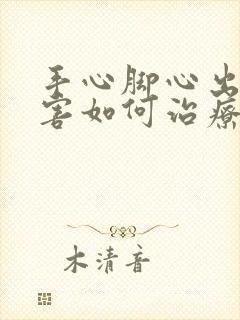 手心脚心出
害如何治疗
木清音